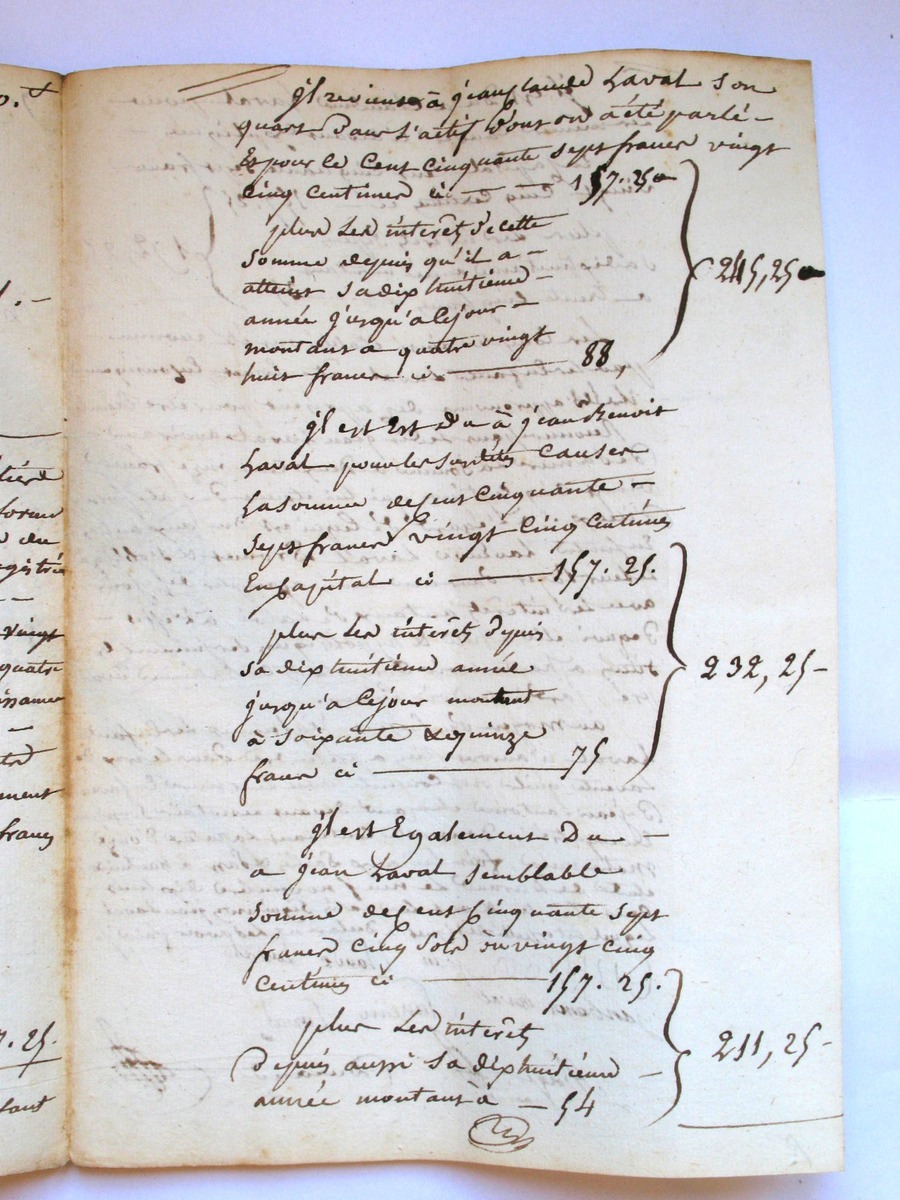 o.t
jl revient à jean Claude Laval son
quart Dans L'actif Dont on a été parlé –
Et pour ce Cent cinquante sept francs vingt
Cinq Centimes ci — 157. 25
plus Les intérêts d'cette
Somme depuis qu'il a –
atteint sa dix huitieme –
année jusqu'a Cejour –
montant a quatre vingt
huit francs ci — 88,
245,25
jl est Est Du à jean Benoit
Laval pour les susdites causes
La Somme de Cent Cinquante –
Sept francs vingt Cinq Centimes
En Capital ci — 157. 25.
plus Les intérêts depuis
sa dix huitieme année
jusqu'a Cejour montent
à Soixante & quinze
francs ci — 75
232, 25 –
jl est Egalement Du –
a jean Laval Semblable
Somme de Cent Cinquante Sept
francs Cinq Sols ou vingt Cinq
Centimes ci — 157. 25.
plus Les intérêts
Depuis aussi sa dix huitieme –
année montant à — 54
211, 25 –
du
vingt
quatre
francs